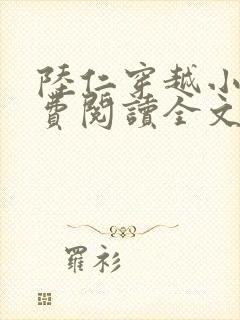 陸仁穿越小
費閱讀全文
羅衫